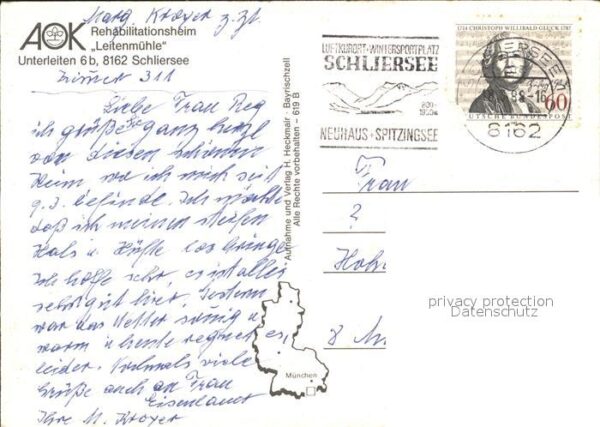 Marg. Kroyer z. Zt.
AOK Rehabilitationsheim
„Leitenmühle"
Unterleiten 6b, 8162 Schliersee
Zimmer 311
Liebe Frau Reg
ich grüße Sie ganz herzl
von diesem schönen
Heim wo ich mich seit
9.3. befinde. Ich möchte
daß ich meinen steifen
Hals u. Hüfte los bringe
Ich hoffe sehr, es ist alles
sehr gut hier. Gestern
war das Wetter sonnig u
warm u heute regnet es
leider. Nochmals viele
Grüße auch an Frau
Eisenlauer
Ihre M. Kroyer
Aufnahme und Verlag H. Heckmair - Bayrischzell
Alle Rechte vorbehalten – 619 B
München
LUFTKURORT·WINTERSPORTPLATZ
SCHLIERSEE
800-
1800m
NEUHAUS+SPITZINGSEE
1714 CHRISTOPH WILLIBALD GLUCK 1787
60
DEUTSCHE BUNDESPOST
SCHLIERSEE 1
8162
Frau
?
8 Mü
privacy protection
Datenschutz